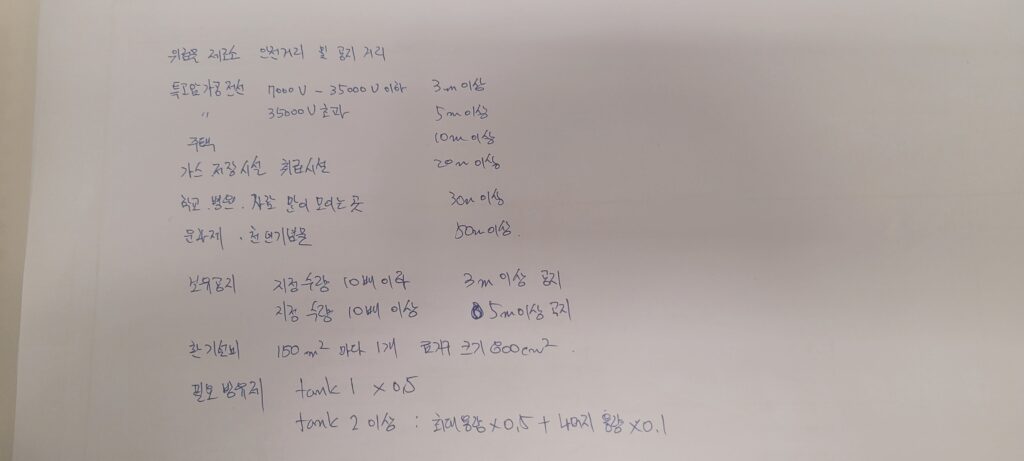 위험물 제조소 안전거리 및 공지 거리
특고압가공전선 7000V ~ 35000V 이하 3m 이상
〃 35000V 초과 5m 이상
주택 10m 이상
가스 저장시설 취급시설 20m 이상
학교. 병원. 사람 많이 모이는 곳 30m 이상
문화재. 천연기념물 50m 이상.
보유공지 지정수량 10배 이하 3m 이상 공지
지정 수량 10배 이상 5m 이상 공지
환기설비 150m² 마다 1개 급기구 크기 800cm².
필요 방유제 tank 1 × 0.5
tank 2 이상 : 최대용량 × 0.5 + 나머지 용량 × 0.1